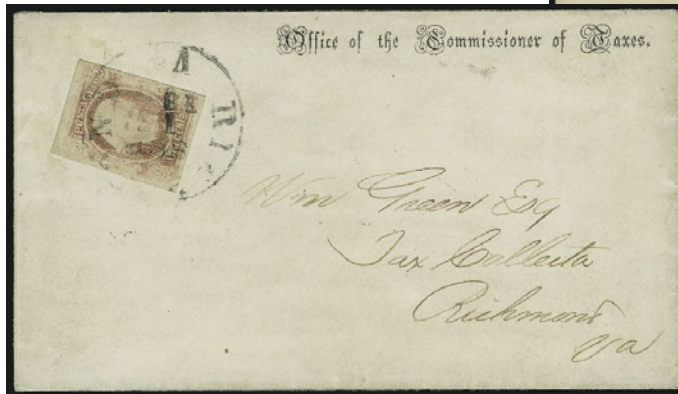 Office of the Commissioner of Taxes.
Wm Green Esq
Tax Collector
Richmond
Va